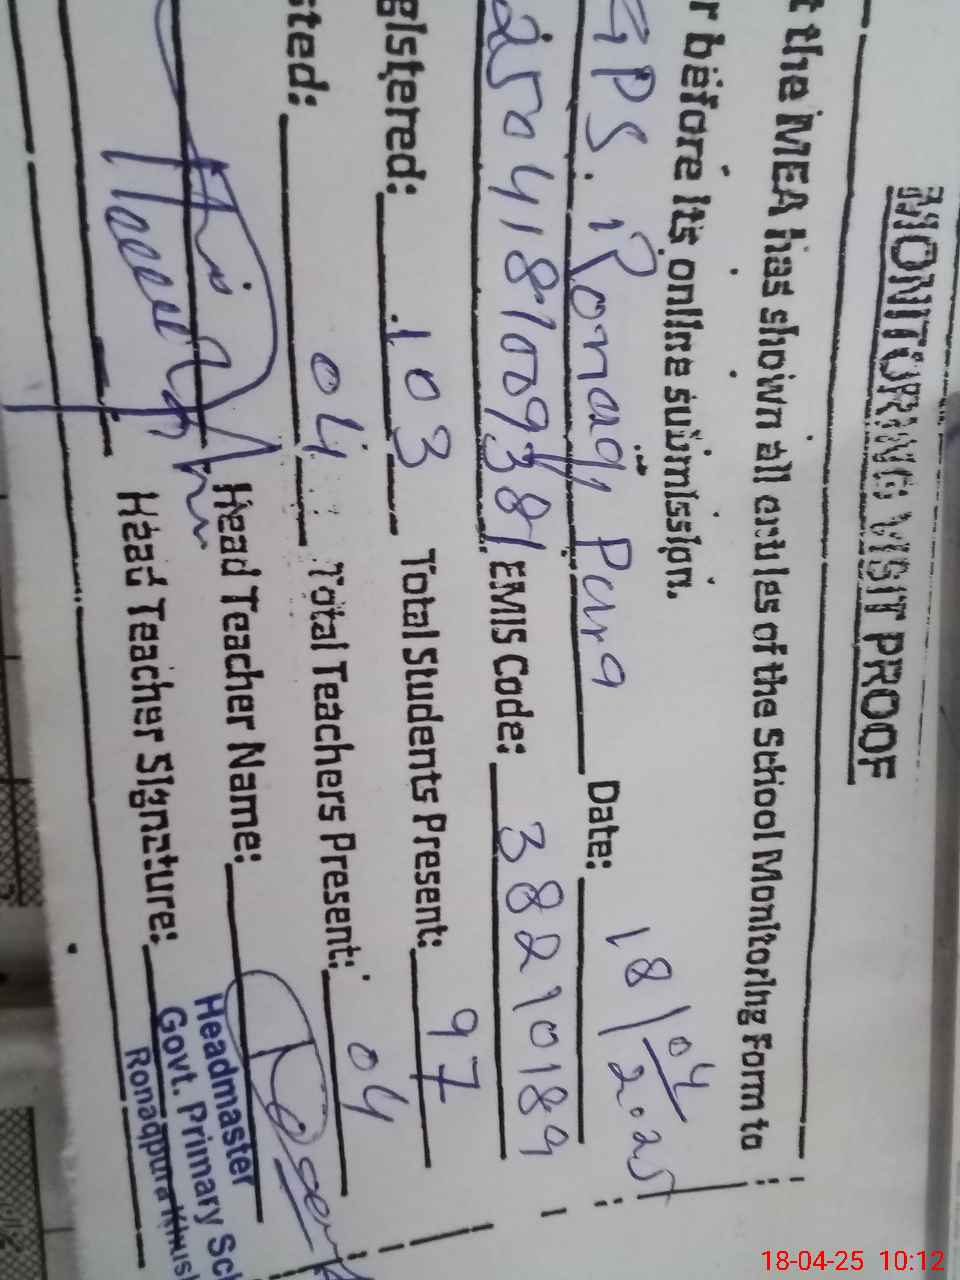 MONITORING VISIT PROOF
t the MEA has shown all articles of the School Monitoring Form to
r before its online submission.
GPS. Ronaq Pura Date: 18/04/2025
EMIS Code: 38210189
gistered: 103 Total Students Present: 97
sted: 04 Total Teachers Present: 04
Head Teacher Name:
Head Teacher Signature:
Headmaster
Govt. Primary Sc
Ronaqpura
18-04-25 10:12